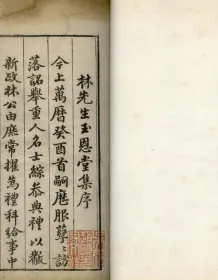 林先生玉恩堂集序
今上萬曆癸酉首嗣厯服孳〻訪
落詔舉重人名士綜叅典禮以黻
新政林公由庶常擢為禮科給事中